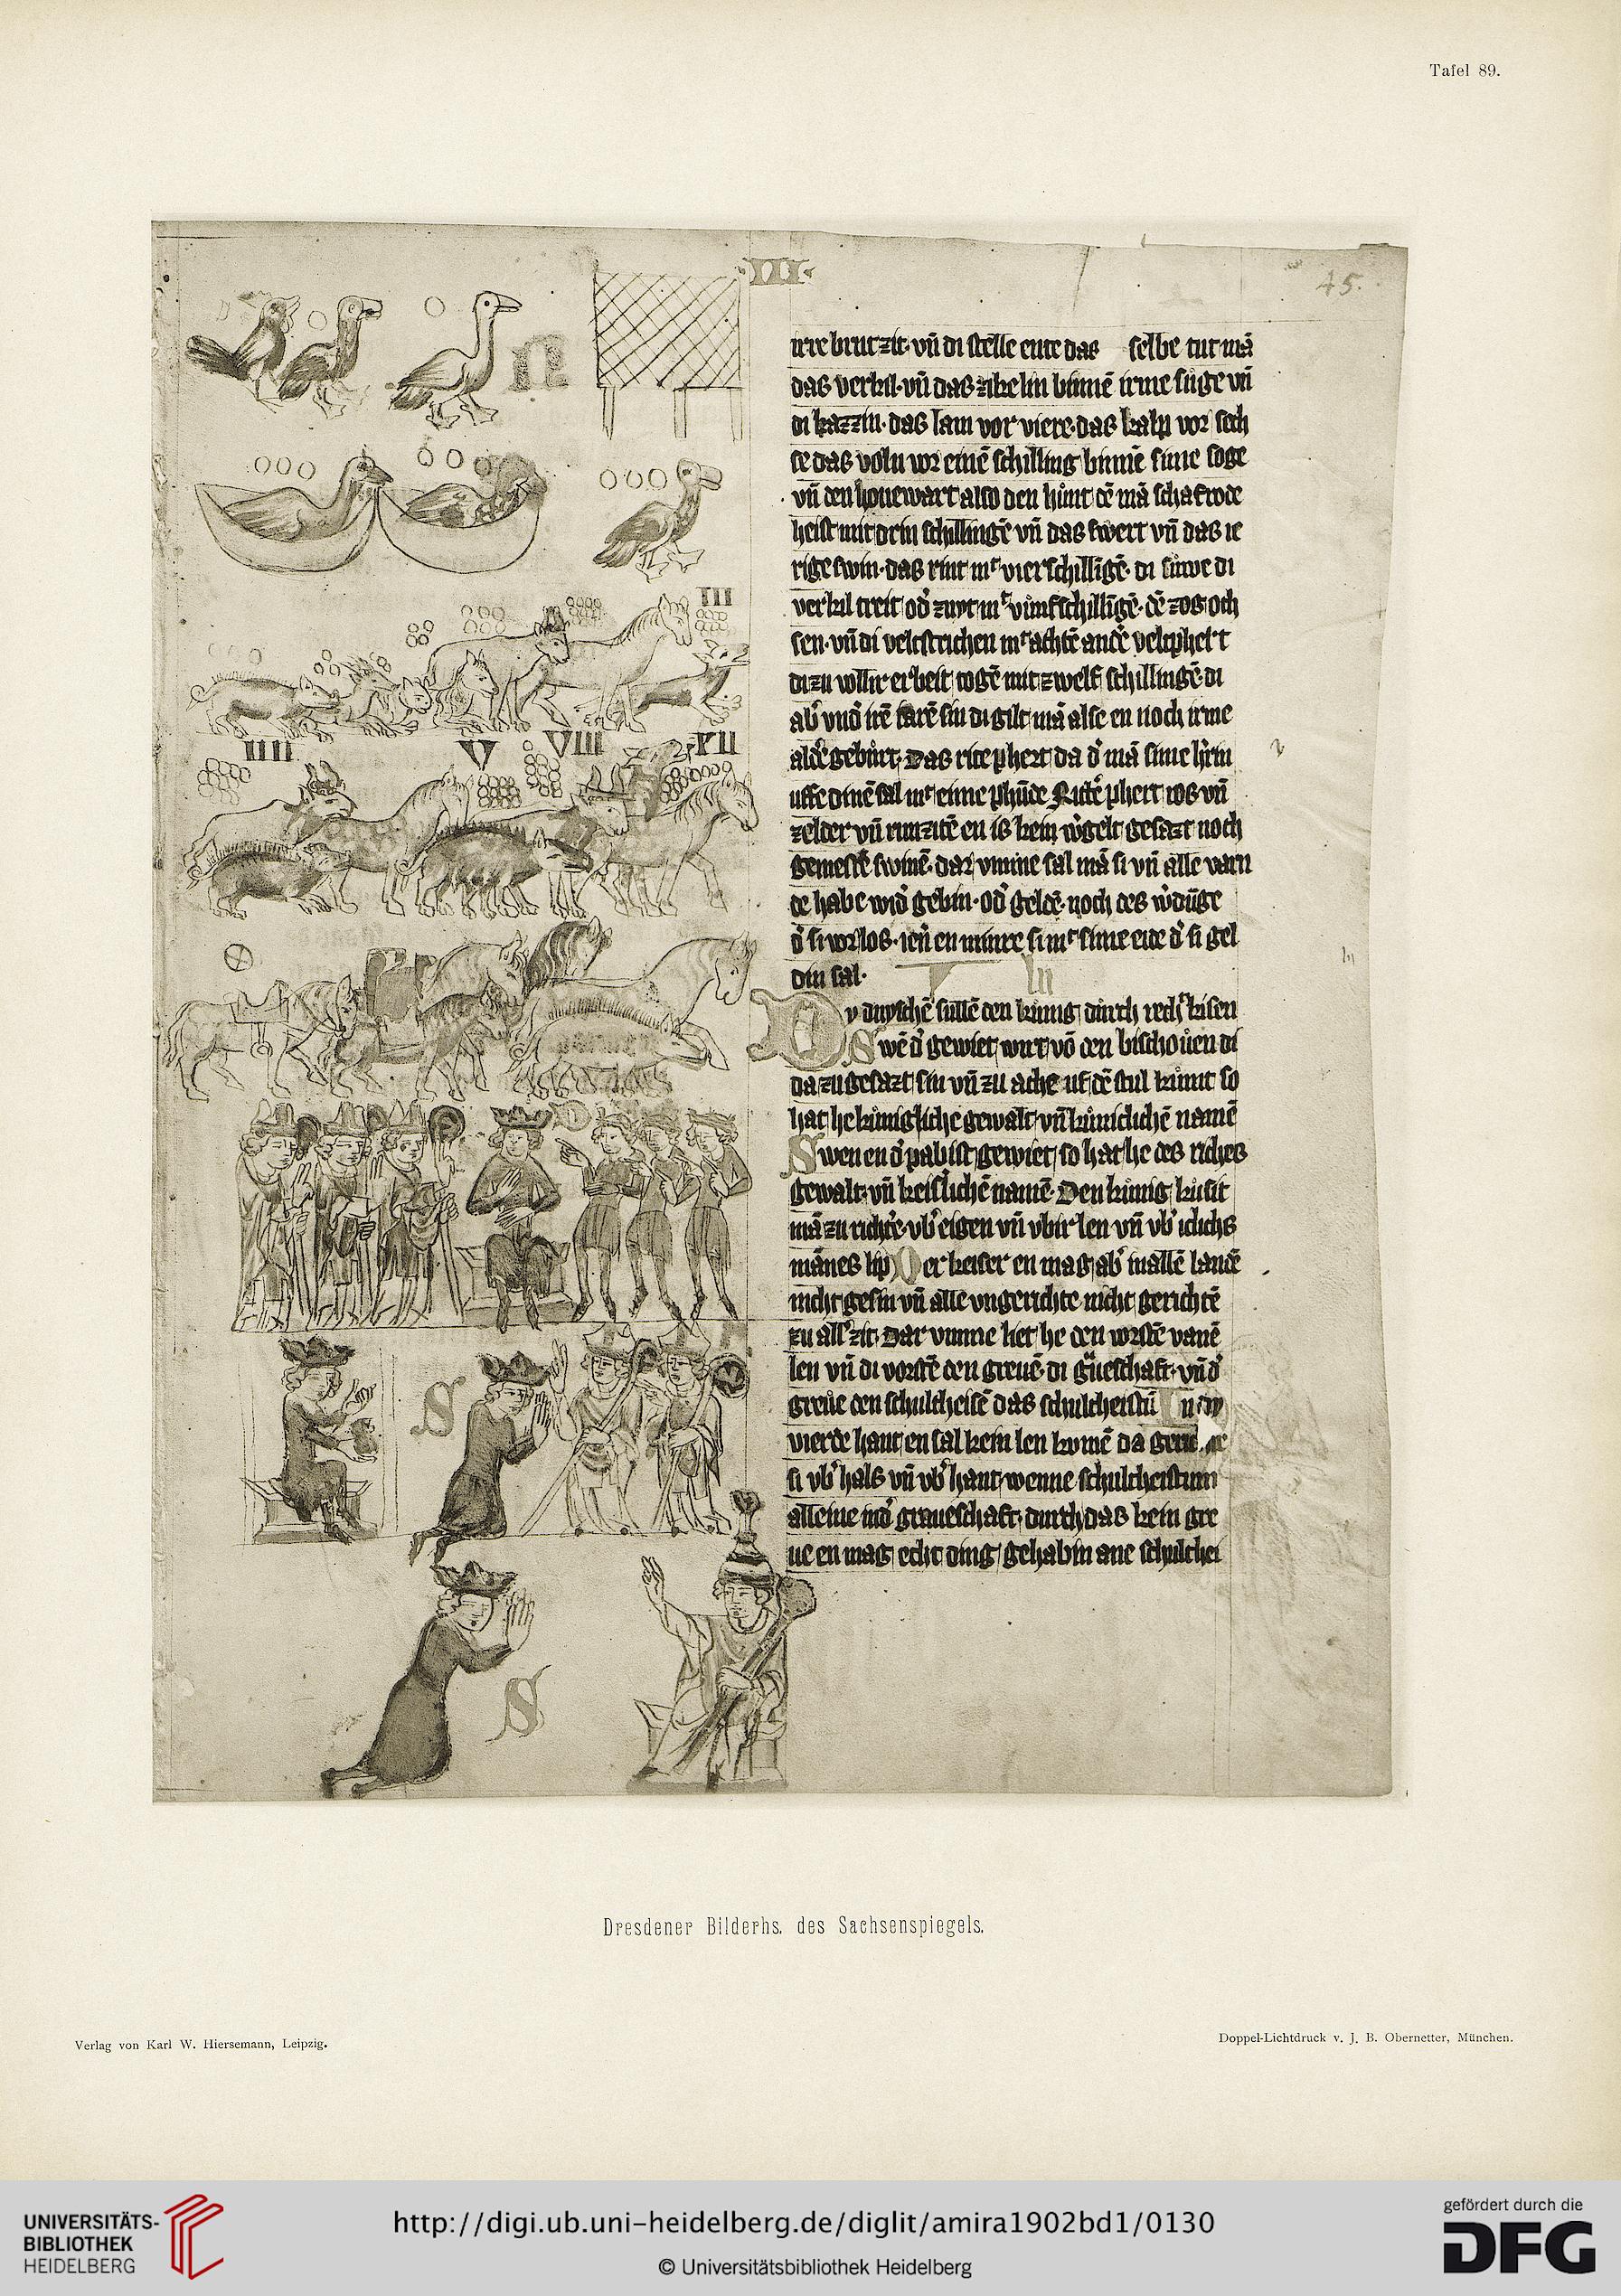 Tafel 89.
III
45.
irre brut zit· vn̄ di stelle eute das selbe tut mā
das verkil· vn̄ das zikelin binnē irme suge vn̄
di kazzin· das lam vor viere· das kalp vor sech
se das voln vor einē schilling binnē sime soge
vn̄ den houewart also den hunt dē mā schafrode
heist mit drin schillingē vn̄ das swert vn̄ das ie
rige swin· das rint mt vier schilligē· di suwe di
verkil treit od' zuyt mt vumf schilligē· dē zog och
sen· vn̄ di veltstrichen mt achtē andē veltphert
di zu vollir erbeit togē mit zwelf schillingē· di
ab' vnd' irē iarē sin di gilt mā alse en noch irme
aldē gebůrt· Das rite phert da d' mā sime h'rin
uffe dinē sal mt eime phūde Ritē phert ros vn̄
zelder vn̄ runzitē en is kein w'gelt gesazt noch
gemestē swinē· dar vmme sal mā si vn̄ alle varn
de habe wid' gebin· od' geldē· noch des w'dūge
d' si vorlos· ienen minre si mt sime eide d' si gel
din sal·
III
Dy duyschē sullē den kunig durch recht kisen
Swē d' gewiet wirt vō den bischouen di
da zu gesazt sin vn̄ zu ache uf dē stul kumt so
hat he kunigliche gewalt vn̄ kuniclichē namē
Swen en d' pabist gewiet so hat he des riches
gewalt vn̄ keiserlichē namē· Den kunig kusit
mā zu richtē· vb' eigen vn̄ vbir len vn̄ vb' iclichs
mānes lip Der keiser en mag ab' in allē landē
nicht gesin vn̄ alle vngerichte nicht gerichtē
zu all' zit· Dar vmme liet he den vorstē vanē
len vn̄ di vorstē den greuē· di gueschaft· vn̄ d'
greue den schultheisē das schultheistū In dy
vierde hant en sal kein len komē da
si vb' hals vn̄ vb' hant wenne schultheistum
alleine ind' graueschaft· durch das kein gre
ue en mag echt ding gehabin ane schulthei
III
IIII
V
VIII
XII
S
S
Dresdener Bilderhs. des Sachsenspiegels.
Verlag von Karl W. Hiersemann, Leipzig.
Doppel-Lichtdruck v. J. B. Obernetter, München.
UNIVERSITÄTS-
BIBLIOTHEK
HEIDELBERG
http://digi.ub.uni-heidelberg.de/diglit/amira1902bd1/0130
© Universitätsbibliothek Heidelberg
gefördert durch die
DFG